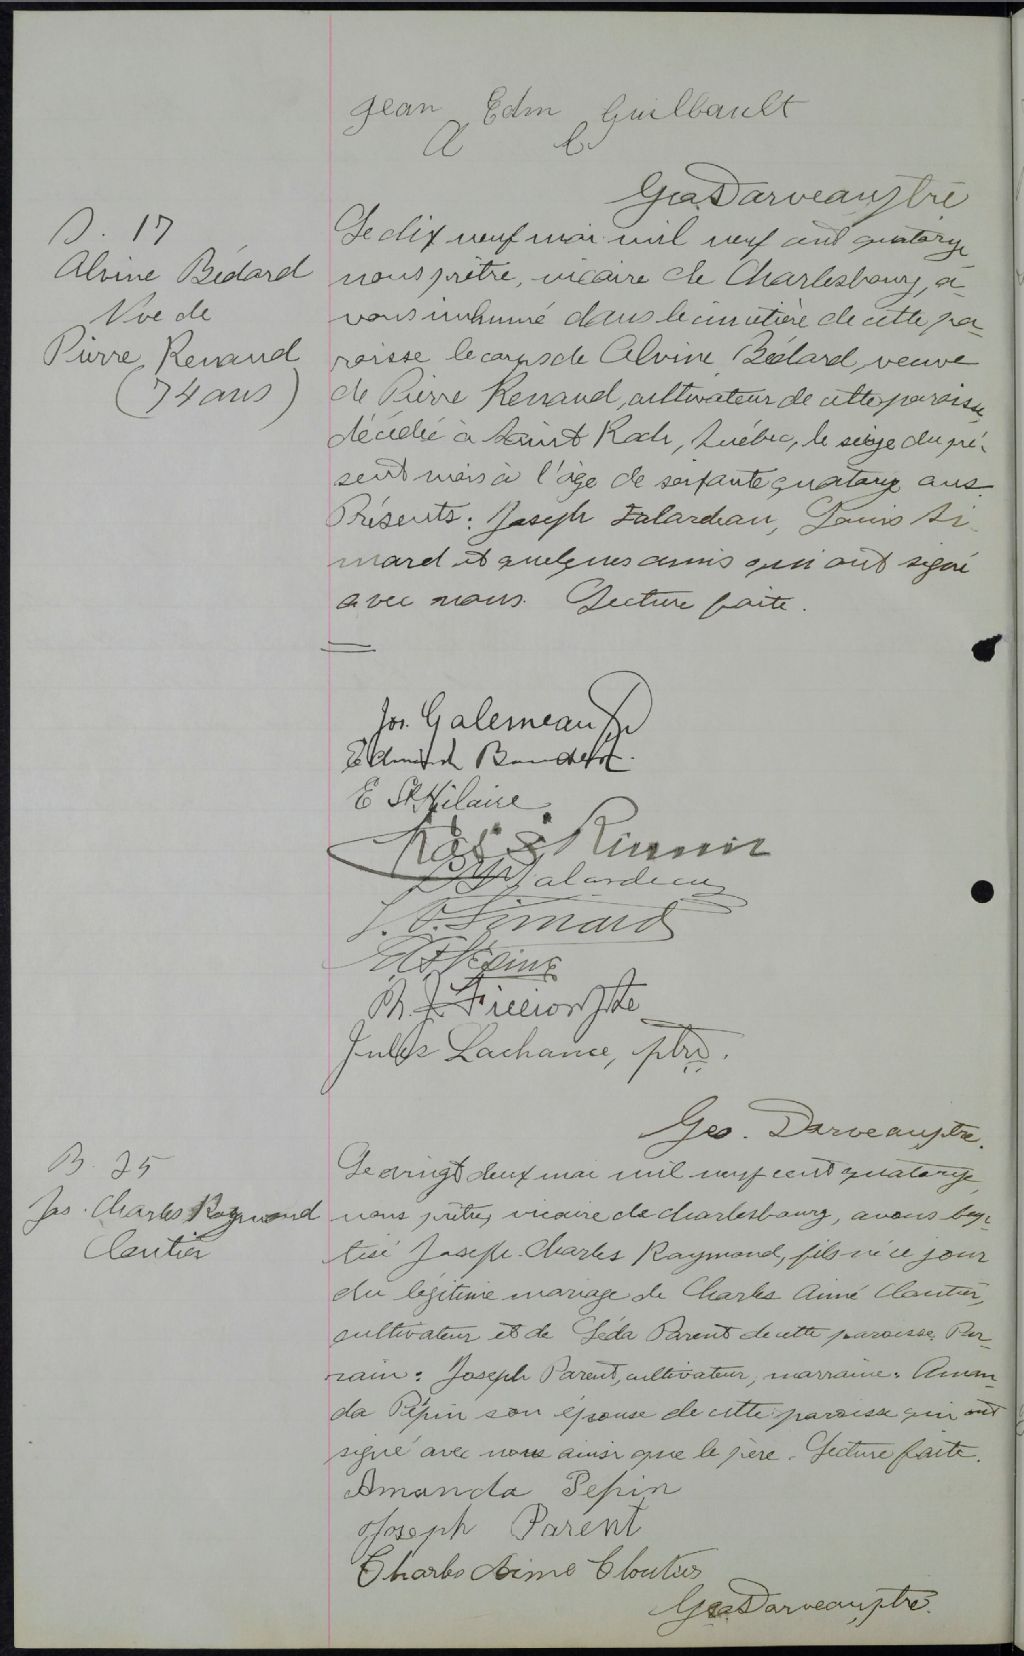 Jean Edm Guilbault
Geo Darveau, ptre
S. 17
Alvine Bédard
Vve de
Pierre Renaud
(74 ans)
Le dix neuf mai mil neuf cent quatorze
nous prêtre, vicaire de Charlesbourg, a-
vons inhumé dans le cimetière de cette pa-
roisse le corps de Alvine Bédard, veuve
de Pierre Renaud, cultivateur de cette paroisse,
décédée à Saint Roch, Québec, le seize du pré-
sent mois à l'âge de soixante quatorze ans.
Présents: Joseph Falardeau, Louis Si-
mard et quelques amis qui ont signé
avec nous. Lecture faite.
Jos. Galerneau
Edmond
E St Hilaire
Falardeau
Simard
Ph. J. Fillion Ptre
Jules Lachance, ptre.
Geo. Darveau, ptre.
B. 25
Jos. Charles Raymond
Cloutier
Le vingt deux mai mil neuf cent quatorze,
nous prêtre, vicaire de Charlesbourg, avons bap-
tisé Joseph-Charles Raymond, fils né ce jour
du légitime mariage de Charles Aimé Cloutier,
cultivateur et de Léda Parent de cette paroisse. Par-
rain: Joseph Parent, cultivateur, marraine: Aman-
da Pépin son épouse de cette paroisse qui ont
signé avec nous ainsi que le père. Lecture faite.
Amanda Pepin
Joseph Parent
Charles Aimé Cloutier
Geo Darveau, ptre.